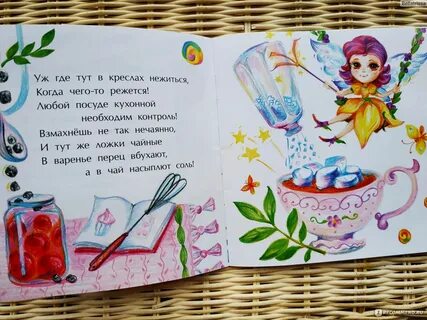 Уж где тут в креслах нежиться,
Когда чего-то режется!
Любой посуде кухонной
необходим контроль!
Взмахнёшь не так нечаянно,
И тут же ложки чайные
В варенье перец вбухают,
а в чай насыплют соль!
IRECOMMEND.RU